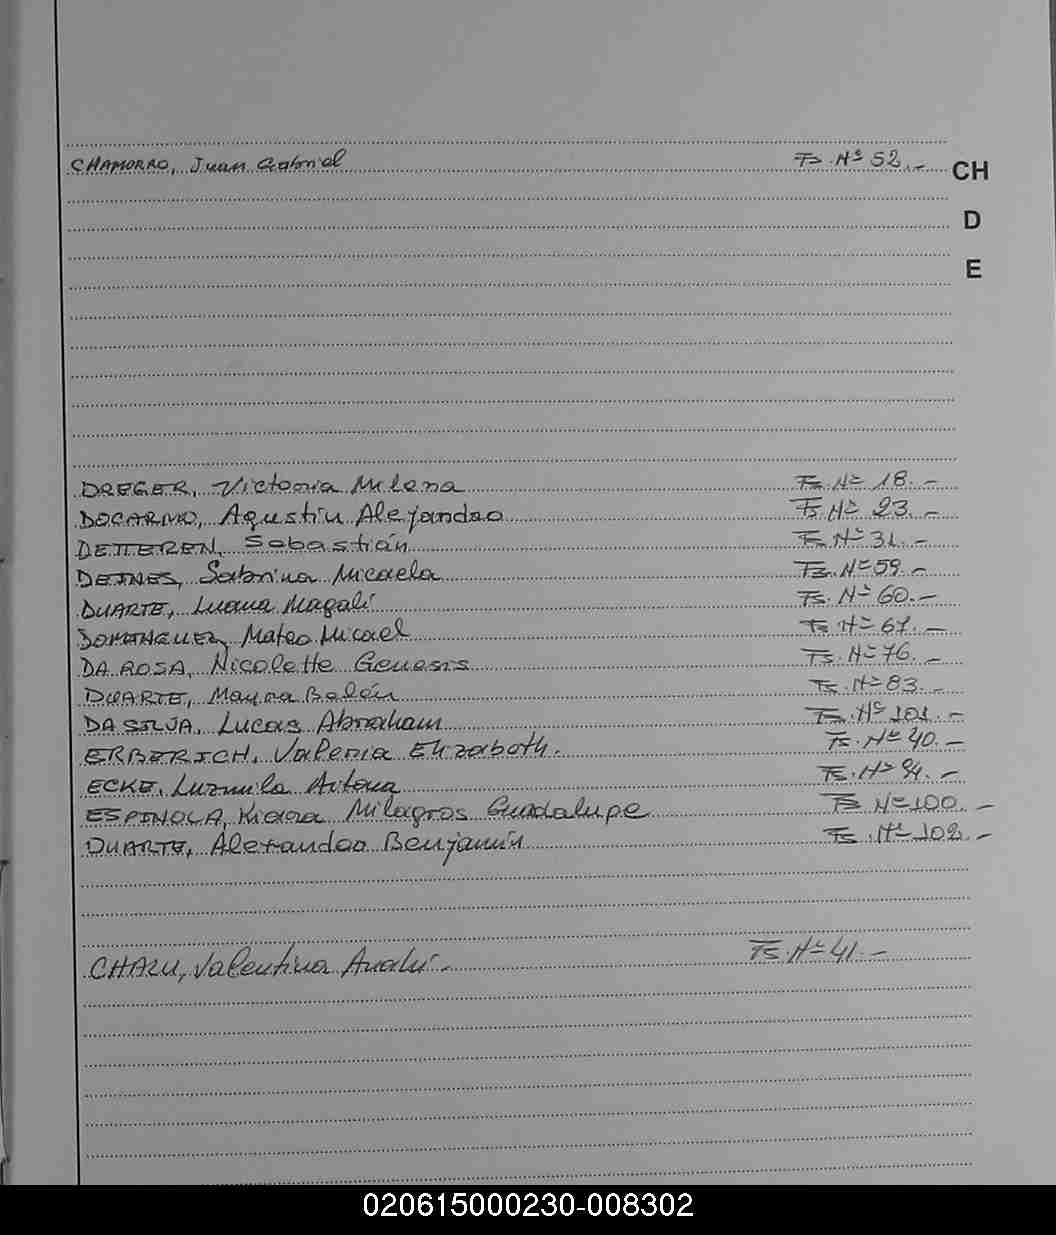 CHAMORRO, Juan Gabriel Fs. Nº 52.- CH
D
E
DREGER, Victoria Milena Fs. Nº 18.-
DOCARMO, Agustín Alejandro Fs. Nº 23.-
DETTEREN, Sebastián Fs. Nº 31.-
DEINES, Sabrina Micaela Fs. Nº 59.-
DUARTE, Luana Magalí Fs. Nº 60.-
DOMINGUEZ, Mateo Micael Fs. Nº 67.-
DA ROSA, Nicolette Genesis Fs. Nº 76.-
DUARTE, Mayra Belén Fs. Nº 83.-
DA SILVA, Lucas Abraham Fs. Nº 101.-
ERBERICH, Valeria Elizabeth. Fs. Nº 40.-
ECKE, Luzmila Fs. Nº 94.-
ESPINOLA, Kiara Milagros Guadalupe Fs Nº 100.-
DUARTE, Alexandro Benjamín Fs. Nº 102.-
Valentina Anahí.- Fs. Nº 41.-
020615000230-008302